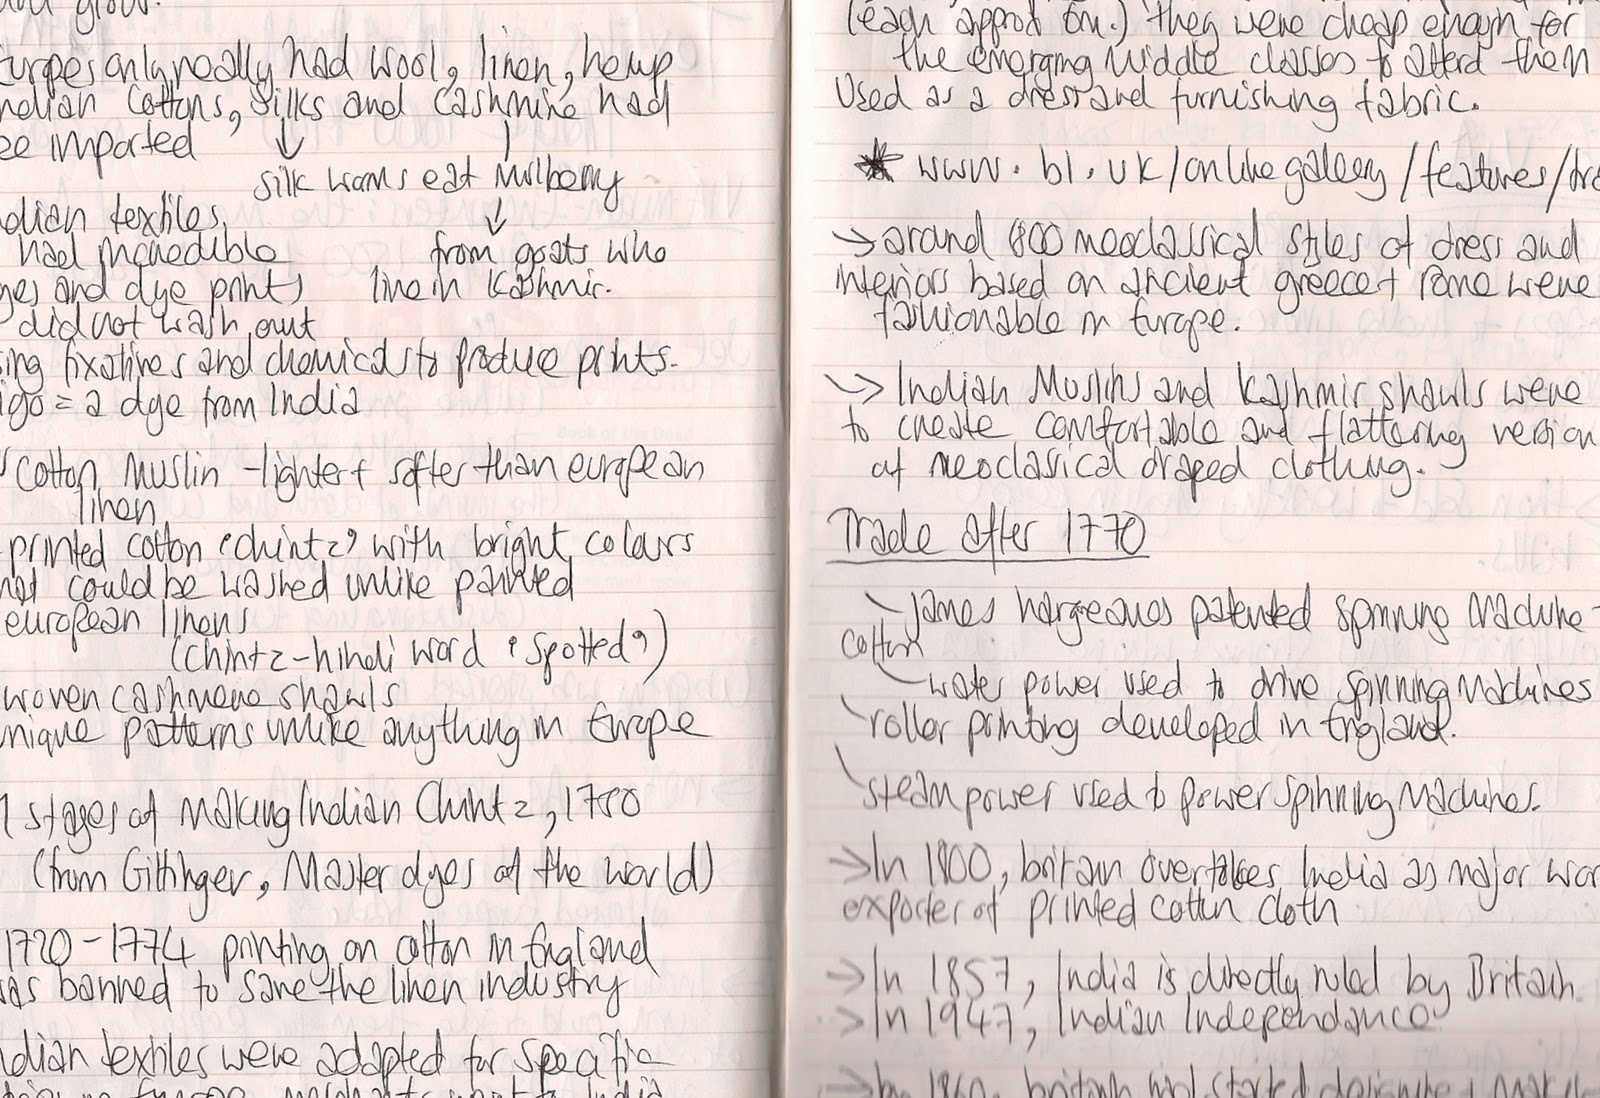 grow.
urpes only really had wool, linen, hemp
ndian cottons, silks and cashmine had
ee imported
silk worms eat mulberry
ndian textiles
had incredible
from goats who
yes and dye prints
live in Kashmir.
did not wash out
sing fixatives and chemicals to produce prints.
igo = a dye from India
cotton muslin - lighter + softer than european
linen
- printed cotton 'chintz' with bright colours
hat could be washed unlike painted
european linens
(chintz - hindi word 'spotted')
woven cashmere shawls
nique patterns unlike anything in Europe
1 stages of making Indian Chintz, 1780
(from Gittinger, Master dyes of the world)
1720 - 1774 printing on cotton in England
as banned to save the linen industry
ndian textiles were adapted for specific
merchants went to India
(each approx 6m.) they were cheap enough for
the emerging middle classes to afford them
Used as a dress and furnishing fabric.
* www.bl.uk/onlinegallery/features/tra
→ around 1800 neoclassical styles of dress and
interiors based on ancient greece + rome were
fashionable in Europe.
→ Indian Muslins and Kashmir shawls were
to create comfortable and flattering version
of neoclassical draped clothing.
Trade after 1770
James hargeaves patented spinning machine -
cotton
water power used to drive spinning machines
roller printing developed in England.
steam power used to power spinning machines.
→ In 1800, britain overtakes India as major wor
exporter of printed cotton cloth
→ In 1857, India is directly ruled by Britain.
→ In 1947, Indian Independance
1860, british started